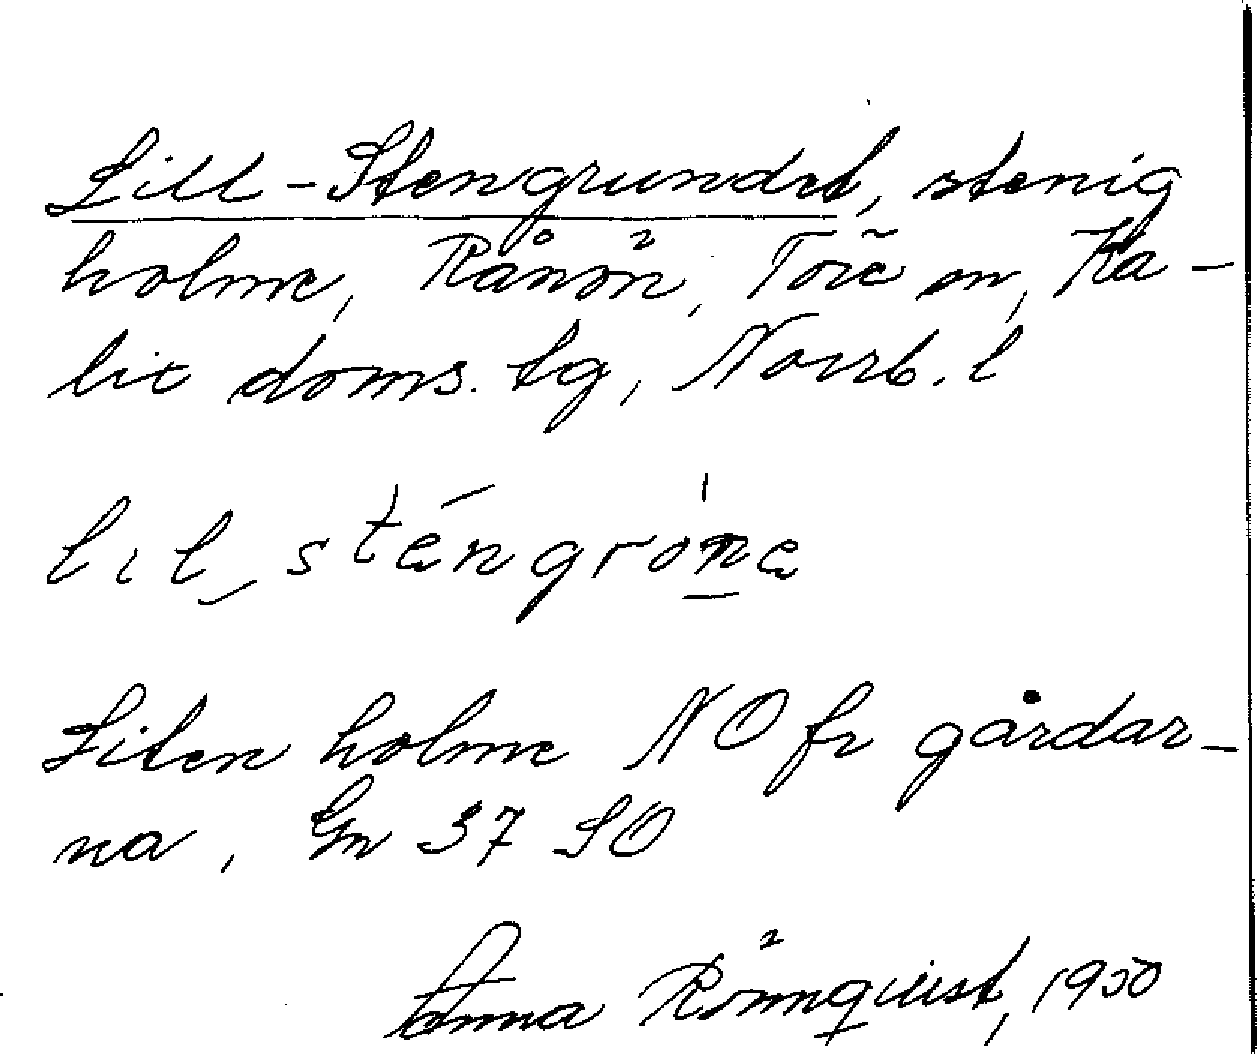 Lill-Stengrundet, stenig
holme, Rånön, Töre sn, Ka-
lix doms. tg, Norrb. l
lil, sténgróna
Liten holme NO fr gårdar-
na, Gn 37 SO
Anna Rönnqvist, 1950